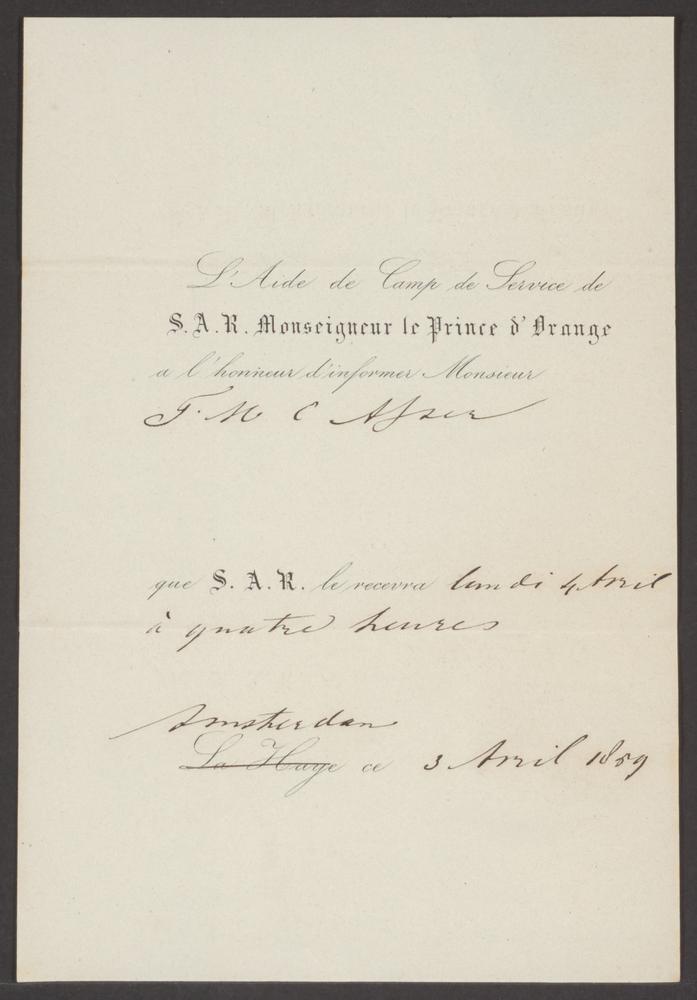 L'Aide de Camp de Service de
S. A. R. Monseigneur le Prince d'Orange
a l'honneur d'informer Monsieur
T. M C Asser
que S. A. R. le recevra lundi 4 Avril
à quatre heures
Amsterdam
La Haye ce 3 Avril 1859